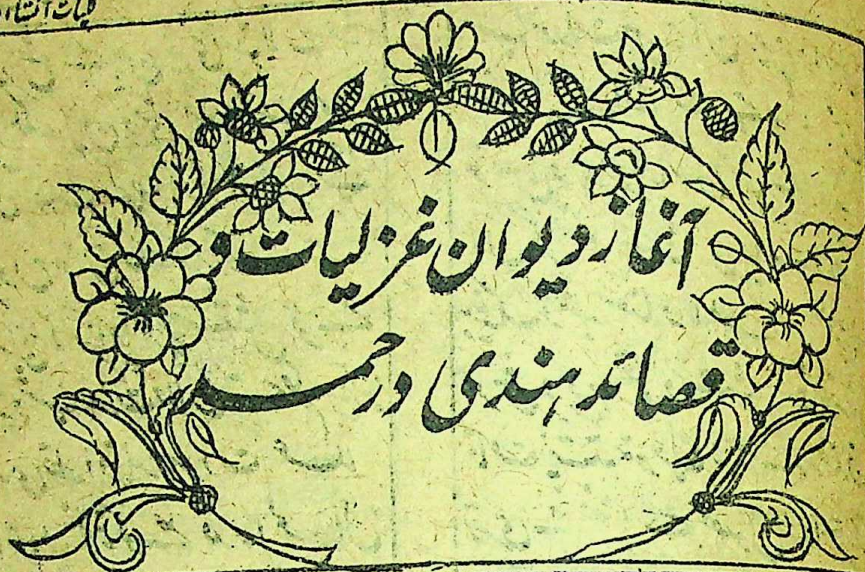 کلیات انشاء
آغاز دیوان غزلیات و
قصائد ہندی در حمد